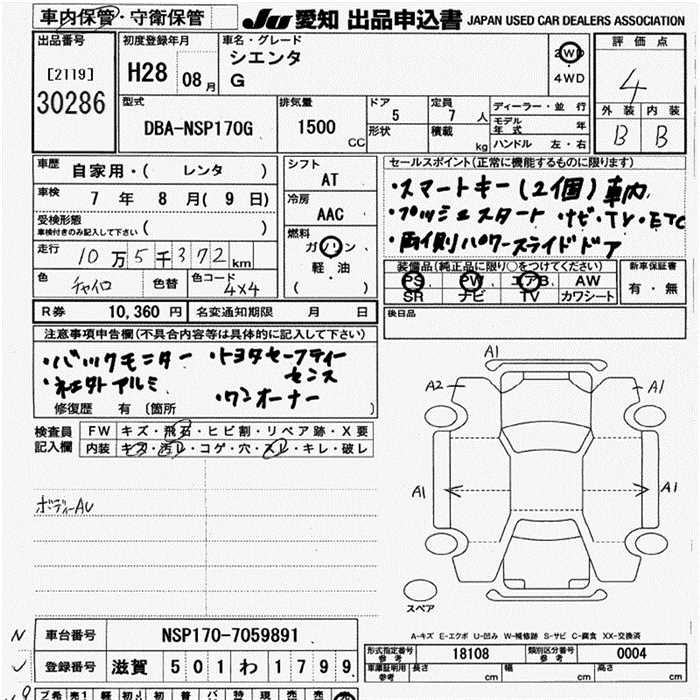 車内保管・守衛保管
JU 愛知 出品申込書 JAPAN USED CAR DEALERS ASSOCIATION
出品番号
[2119]
30286
初度登録年月
H28 08月
車名・グレード
シエンタ
G
2WD
4WD
評価点
4
外装 内装
B B
型式
DBA-NSP170G
排気量
1500 CC
ドア
5
形状
定員
7 人
積載
kg
ディーラー・並行
モデル年式 年
ハンドル 左・右
車歴 自家用・( レンタ )
車検 7 年 8 月 ( 9 日)
受検形態
車検付きのみ記入して下さい ( )
走行 10万5千372km
色 チャイロ 色替 色コード 4X4
シフト
AT
冷房
AAC
燃料
ガソリン、
軽・油
( )
セールスポイント(正常に機能するものに限ります)
・スマートキー(2個)車内
・プッシュスタート ・ナビ・TV・ETC
・両側パワースライドドア
装備品(純正品に限り○をつけてください)
PS PW エアB AW
SR ナビ TV カワシート
新車保証書
有・無
後日品
R券 10,360 円 名変通知期限 月 日
注意事項申告欄(不具合内容等は具体的に記入して下さい)
・バックモニター ・トヨタセーフティー
センス
・社外アルミ ・ワンオーナー
修復歴 有 〔箇所 〕
検査員
記入欄
FW キズ・飛石・ヒビ割・リペア跡・X要
内装 キズ・汚レ・コゲ・穴・スレ・キレ・破レ
ボディーAU
A1
A2
A1
A1
A1
スペア
A-キズ E-エクボ U-凹み W-補修跡 S-サビ C-腐食 XX-交換済
N 車台番号 NSP170-7059891
登録番号 滋賀 501わ1799
形式指定番号
参考
18108
類別区分番号
参考
0004
車庫証明用
参考
長さ cm 幅 cm 高さ cm